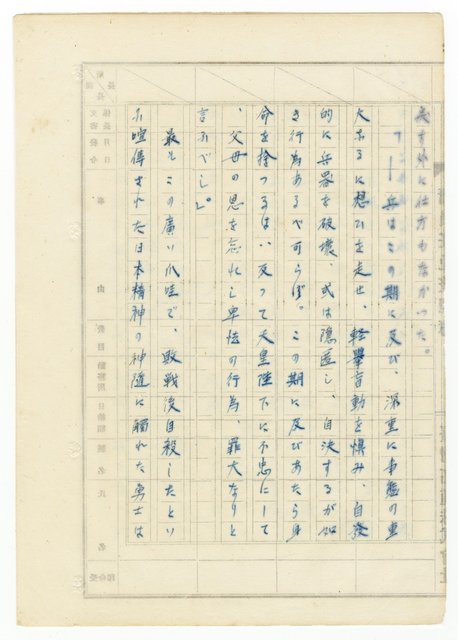 戻す外に仕方もなかつた。
「ー兵はこの期に及び、深重に事態の重
大なるに想ひを走せ、軽擧盲動を慎み、自發
的に兵器を破壊、或は隠匿し、自決するが如
き行為あるべからず。この期に及びあたら身
命を捨つるは、反って天皇陛下に不忠にして
、父母の恩を忘れし卑怯の行為、罪大なりと
言ふべし」。
最もこの廣い爪哇で、敗戦後自殺したとい
ふ喧傳された日本精神の神髄に觸れた勇士は